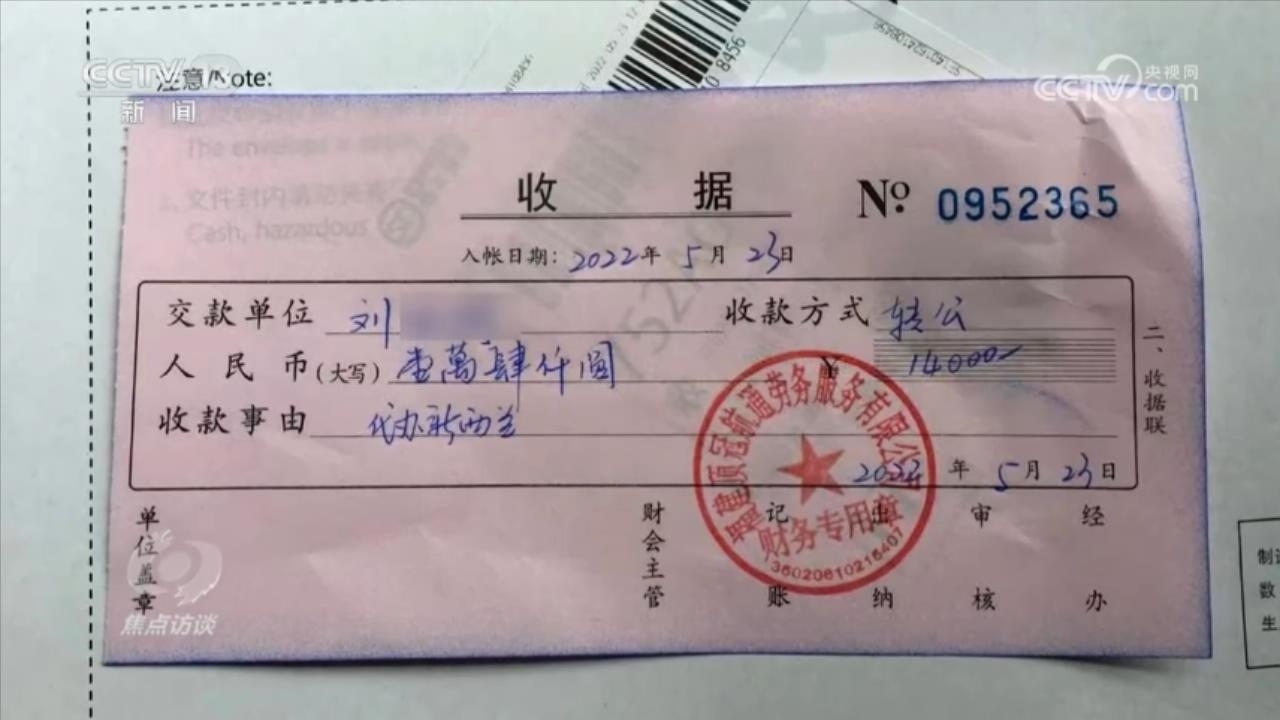 CCTV 13
新闻
央视网
CCTV.com
注意/Note:
The envelope
文件封内请勿夹寄
Cash, hazardous
收据
No. 0952365
入帐日期: 2022年 5月 23日
交款单位 刘 收款方式 转公
人民币(大写) 壹萬肆仟圆 ¥ 14000
收款事由 代办新西兰
2022年 5月 23日
顶冠航通劳务服务有限公司
财务专用章
单位盖章 财会主管 记账 出纳 审核 经办
二、收据联
焦点访谈